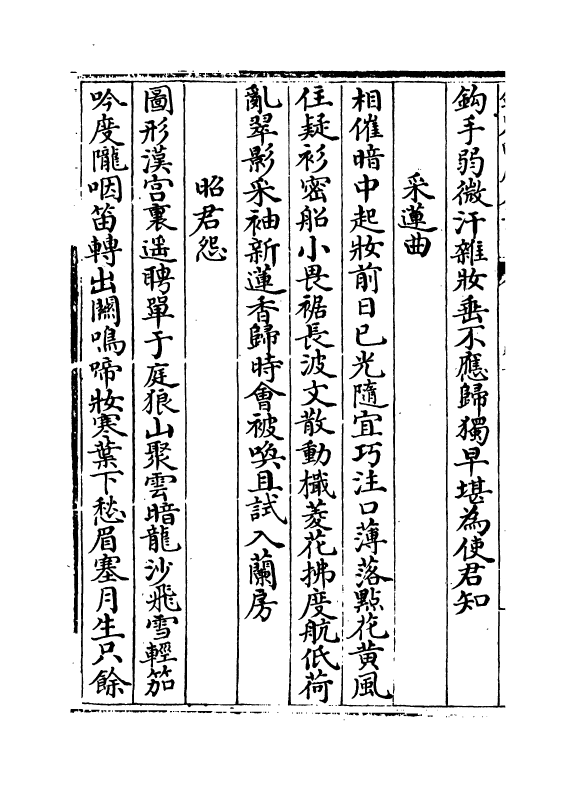 鈎手弱微汗雜妝垂不應歸獨早堪為使君知
采蓮曲
相催暗中起妝前日已光隨宜巧注口薄落點花黄風
住疑衫密船小畏裾長波文散動檝菱花拂度航低荷
亂翠影采袖新蓮香歸時會被喚且試入蘭房
昭君怨
圖形漢宫裏遥聘單于庭狼山聚雲暗龍沙飛雪輕笳
吟度隴咽笛轉出關鳴啼妝寒葉下愁眉塞月生只餘